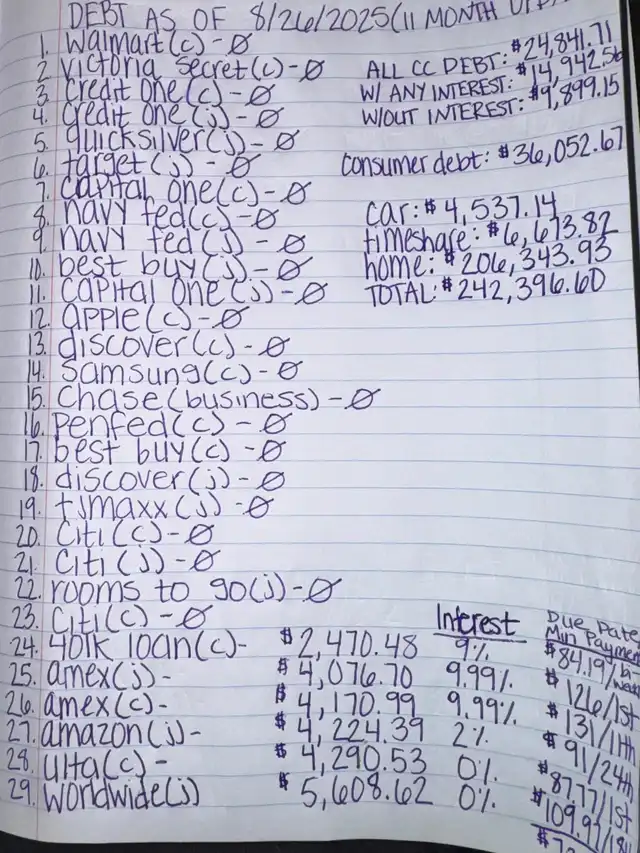 DEBT AS OF 8/26/2025 (11 MONTH
1. Walmart(c) - Ø
2. Victoria Secret(c) - Ø
3. Credit One(c) - Ø
4. Credit One(j) - Ø
5. quicksilver(j) - Ø
6. target(j) - Ø
7. Capital One(c) - Ø
8. navy fed(c) - Ø
9. navy fed(j) - Ø
10. best buy(j) - Ø
11. Capital One(j) - Ø
12. apple(c) - Ø
13. discover(c) - Ø
14. Samsung(c) - Ø
15. Chase(business) - Ø
16. Penfed(c) - Ø
17. best buy(c) - Ø
18. discover(j) - Ø
19. tjmaxx(j) - Ø
20. Citi(c) - Ø
21. Citi(j) - Ø
22. rooms to go(j) - Ø
23. Citi(c) - Ø
ALL CC DEBT: $24,841.71
W/ ANY INTEREST: $14,942.56
W/OUT INTEREST: $9,899.15
Consumer debt: $36,052.67
Car: $4,537.14
timeshare: $6,673.82
home: $206,343.93
TOTAL: $242,396.60
Interest Due Date
Min Payment
24. 401k loan(c) - $2,470.48 9% $84.19/bi-
25. amex(j) - $4,076.70 9.99% $126/1st
26. amex(c) - $4,170.99 9.99% $131/11th
27. amazon(j) - $4,224.39 2% $91/24th
28. Ulta(c) - $4,290.53 0% $87.77/1st
29. Worldwide(j) $5,608.62 0% $109.97/18th